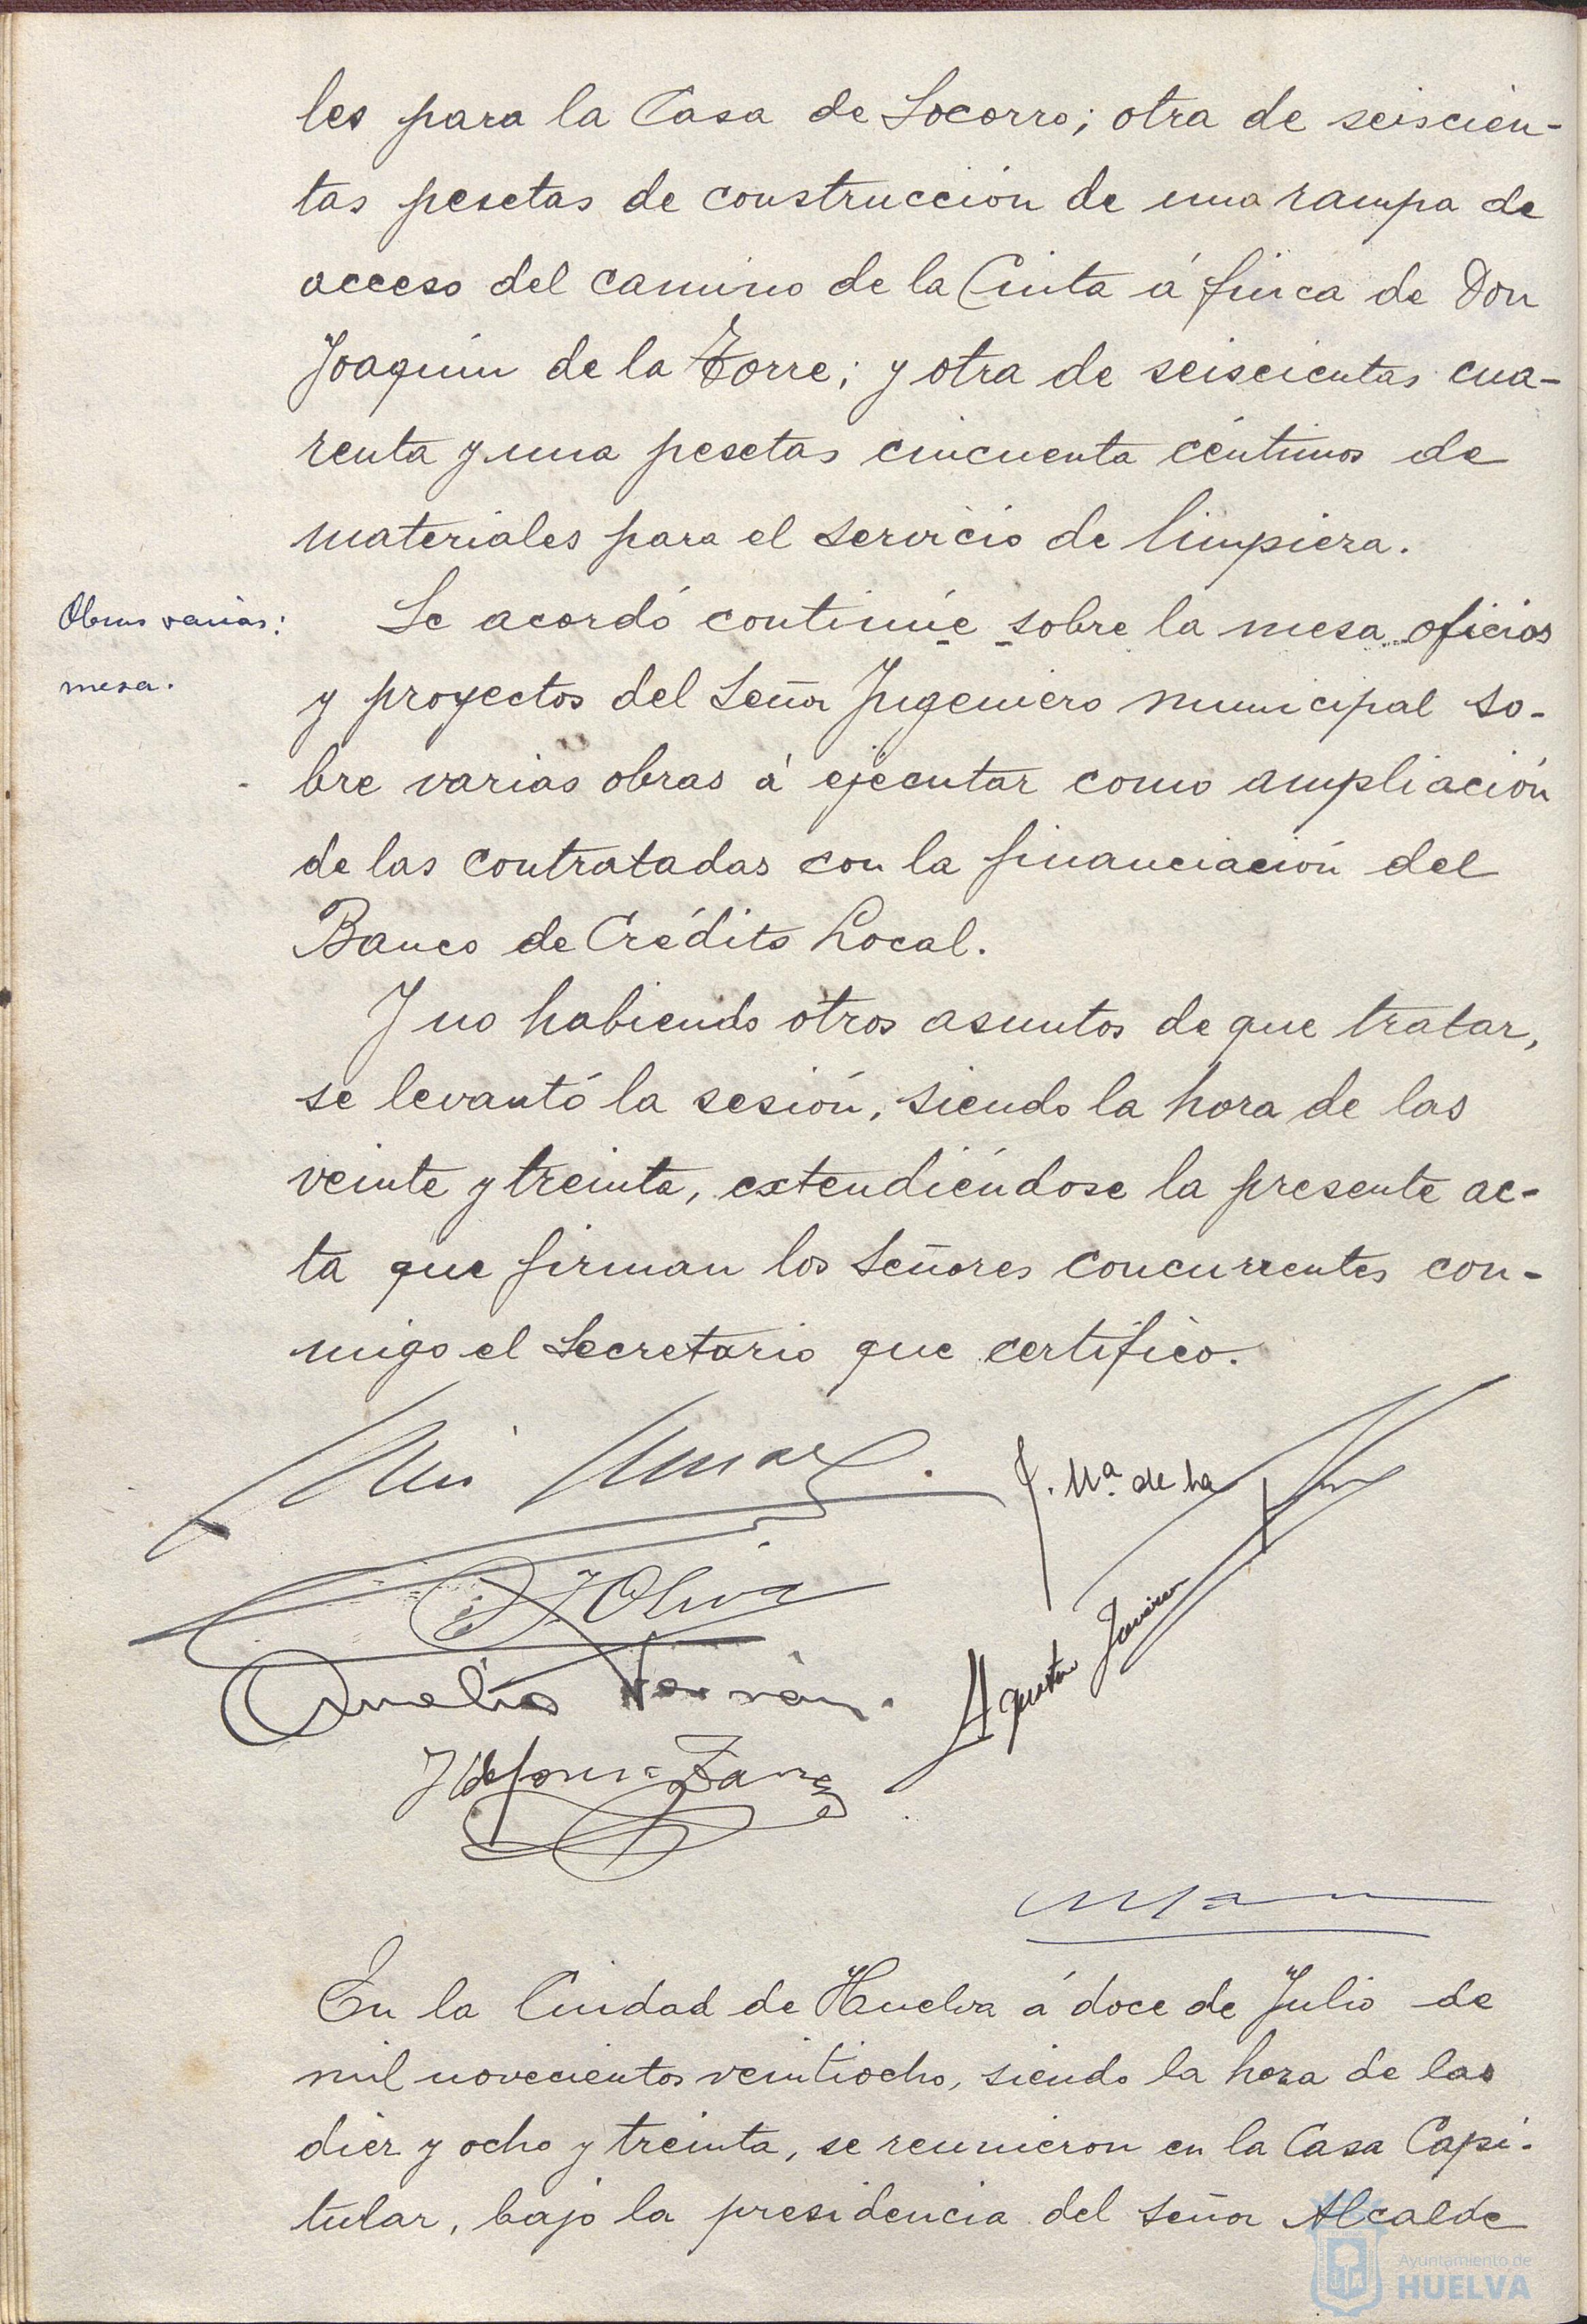 les para la Casa de Socorro; otra de seiscien-
tas pesetas de construcción de una rampa de
acceso del camino de la Cinta á finca de Don
Joaquín de la Torre; y otra de seiscientas cua-
renta y una pesetas cincuenta céntimos de
materiales para el servicio de limpieza.
Obras varias:
mesa.
Se acordó continúe sobre la mesa oficios
y proyectos del Señor Ingeniero municipal so-
bre varias obras á ejecutar como ampliación
de las contratadas con la financiación del
Banco de Crédito Local.
Y no habiendo otros asuntos de que tratar,
se levantó la sesión, siendo la hora de las
veinte y treinta, extendiéndose la presente ac-
ta que firman los Señores concurrentes con-
migo el Secretario que certifico.
J. Mª. de la
Oliva
Aurelio
En la Ciudad de Huelva á doce de Julio de
mil novecientos veintiocho, siendo la hora de las
diez y ocho y treinta, se reunieron en la Casa Capi-
tular, bajo la presidencia del Señor Alcalde
Ayuntamiento de
HUELVA